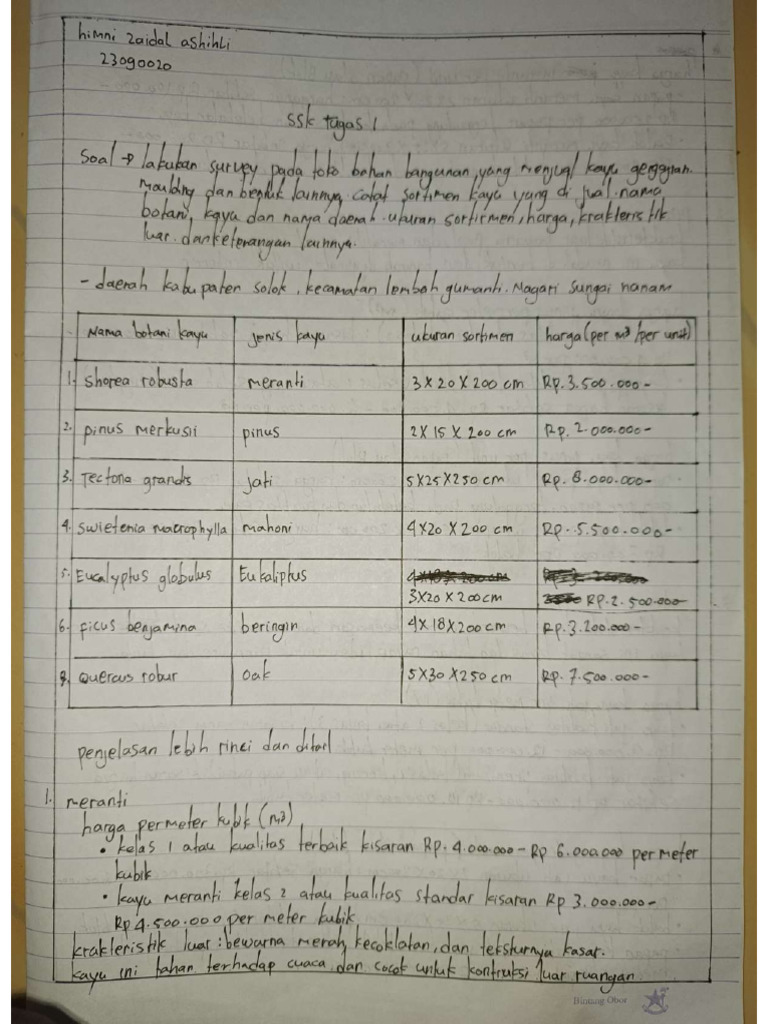 himni zaidal ashihli
23090020
SSK tugas 1
Soal → lakukan survey pada toko bahan bangunan, yang menjual kayu gergajian.
Moulding dan bentuk lainnya, catat sortimen kayu yang di jual. nama
botani, kayu dan nama daerah. ukuran sortirmen, harga, krakteristik
luar. dan keterangan lainnya.
- daerah kabupaten solok, kecamatan lembah gumanti. Nagari sungai nanam
Nama botani kayu jenis kayu ukuran sortimen harga (per m³/per unit)
1. Shorea robusta meranti 3 X 20 X 200 cm Rp. 3.500.000-
2. pinus merkusii pinus 2 X 15 X 200 cm Rp. 2.000.000-
3. Tectona grandis jati 5X25X250 cm Rp. 8.000.000-
4. Swietenia macrophylla mahoni 4X20 X 200 cm Rp. 5.500.000-
5. Eucalyptus globulus Eukaliptus
3X20 X 200cm Rp. 2.500.000-
6. ficus benjamina beringin 4X18X200 cm Rp. 3.200.000-
8. Quercus robur oak 5X30 X 250 cm Rp. 7.500.000-
penjelasan lebih rinci dan ditail
1. meranti
harga permeter kubik (m3)
• kelas 1 atau kualitas terbaik kisaran Rp. 4.000.000 - Rp 6.000.000 per meter
kubik
• kayu meranti kelas 2 atau kualitas standar kisaran Rp 3.000.000-
Rp 4.500.000 per meter kubik.
krakteristik luar : bewarna merah kecoklatan, dan teksturnya kasar.
kayu ini tahan terhadap cuaca dan cocok untuk kontruksi luar ruangan.
Bintang Obor